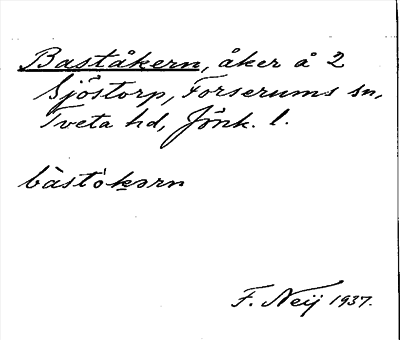 Baståkern, åker å 2
Sjöstorp, Forserums sn,
Tveta hd, Jönk. l.
bàstòkərn
F. Neij 1937.